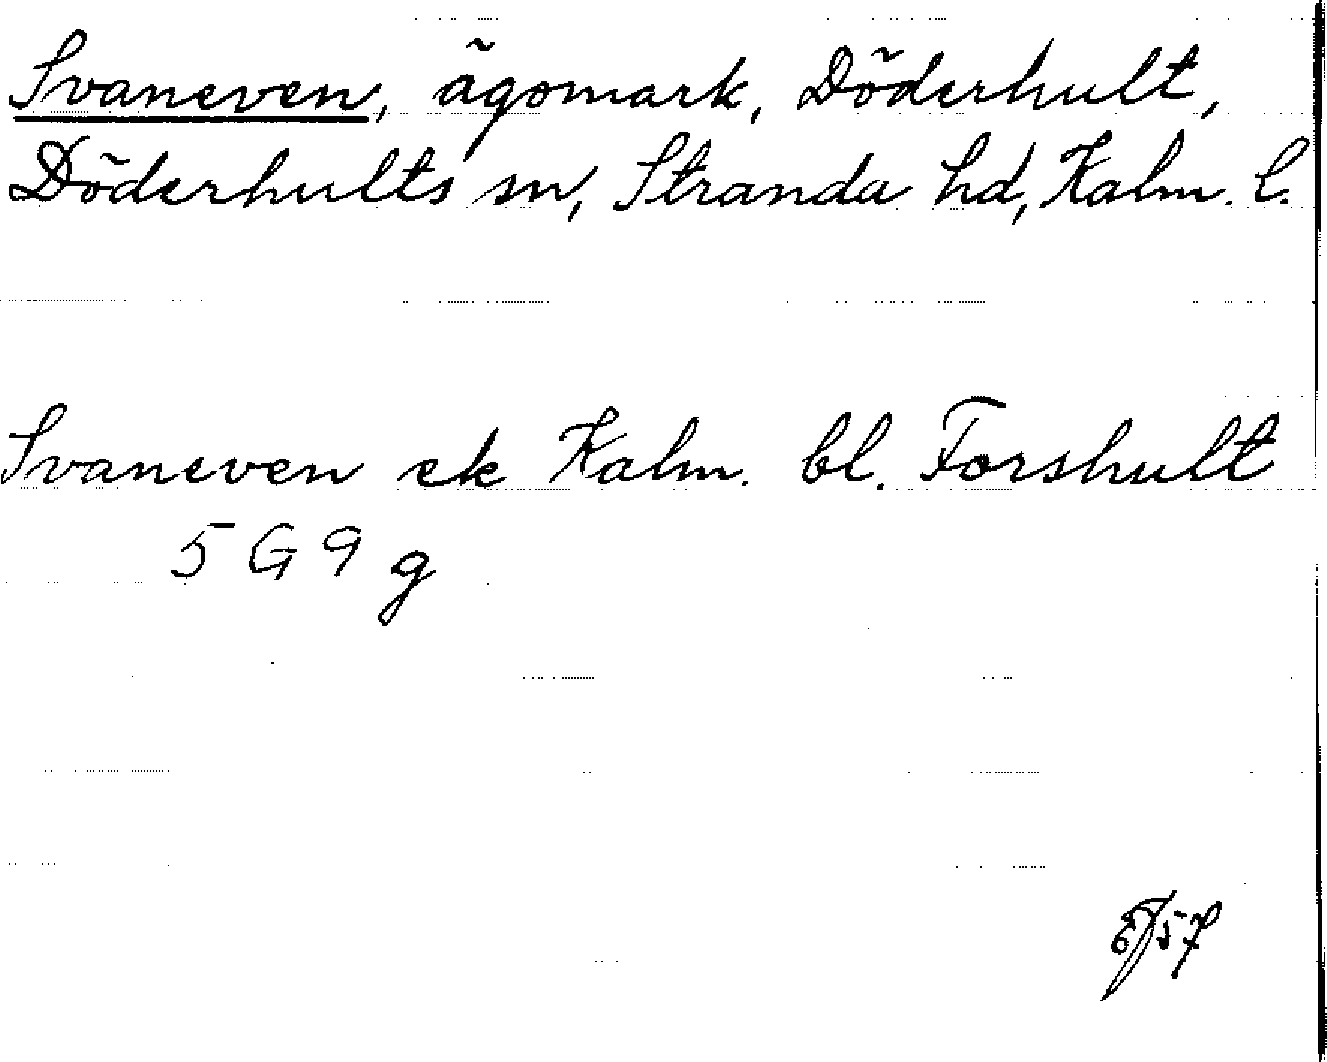 Svaneven, ägomark, Döderhult,
Döderhults sn, Stranda hd, Kalm. l.
Svaneven ek Kalm. bl. Forshult
5 G 9 g
57